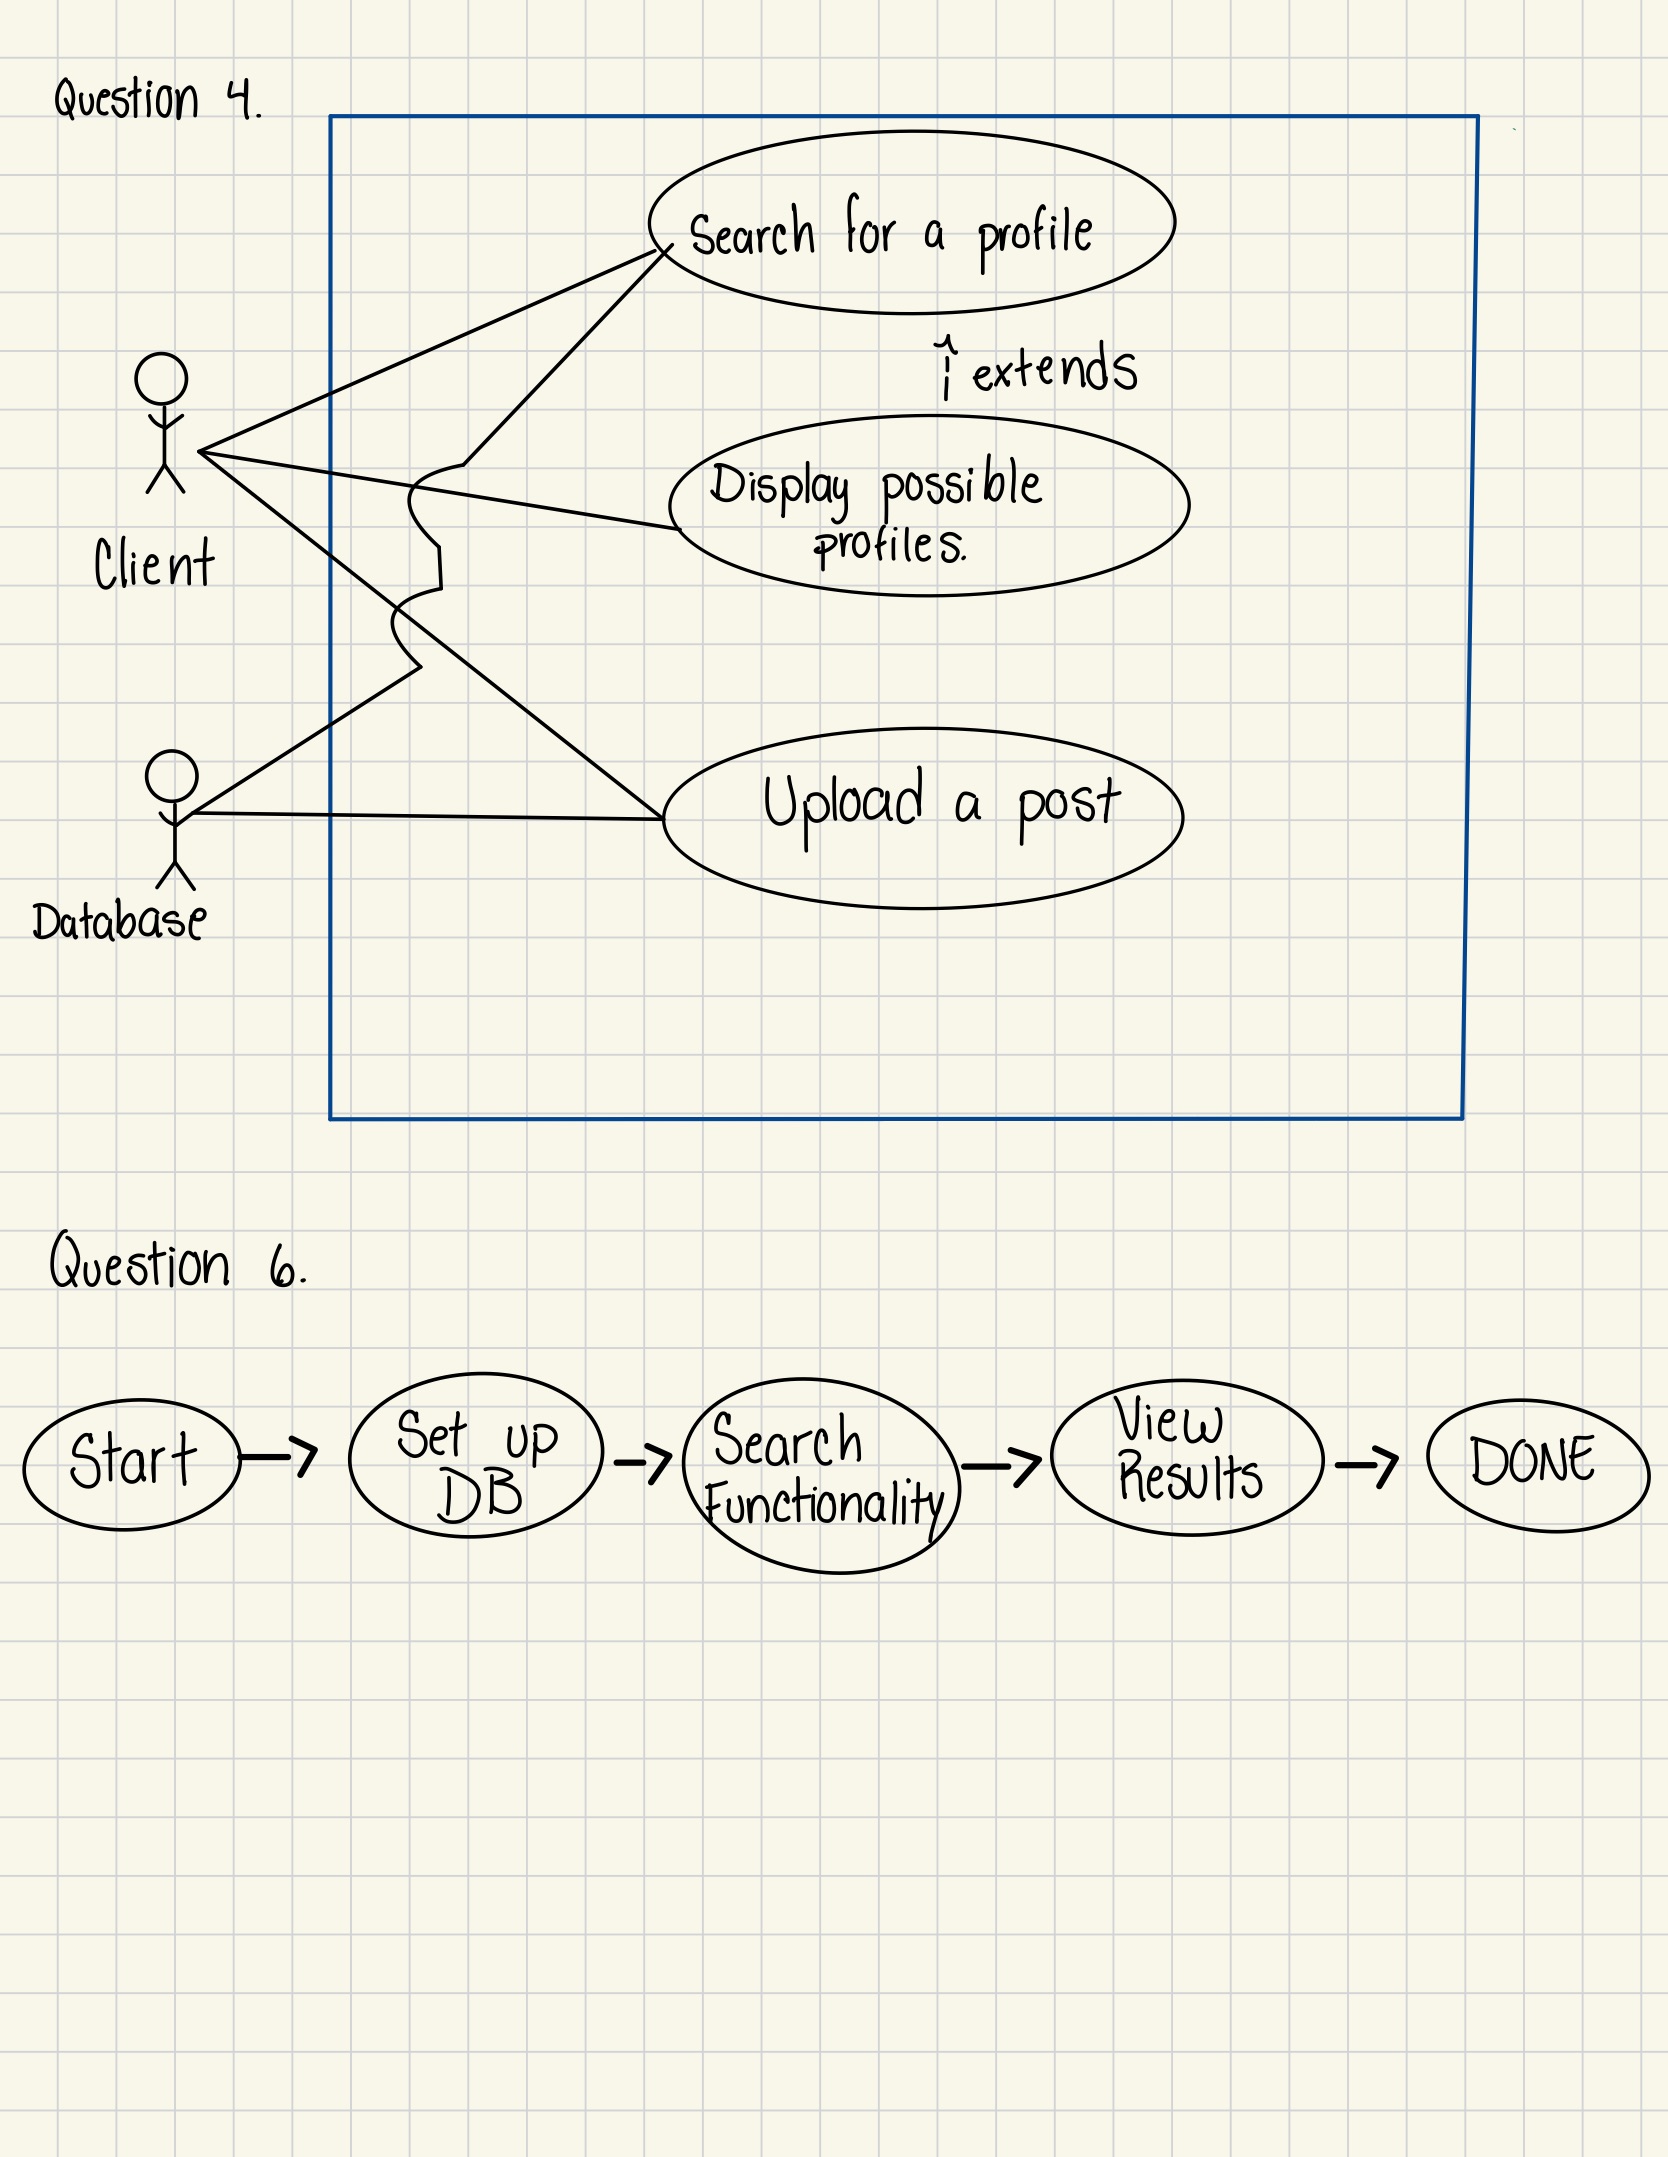 Question 4.
Search for a profile
extends
Display possible
profiles.
Client
Upload a post
Database
Question 6.
Start
Set up
DB
Search
Functionality
View
Results
DONE